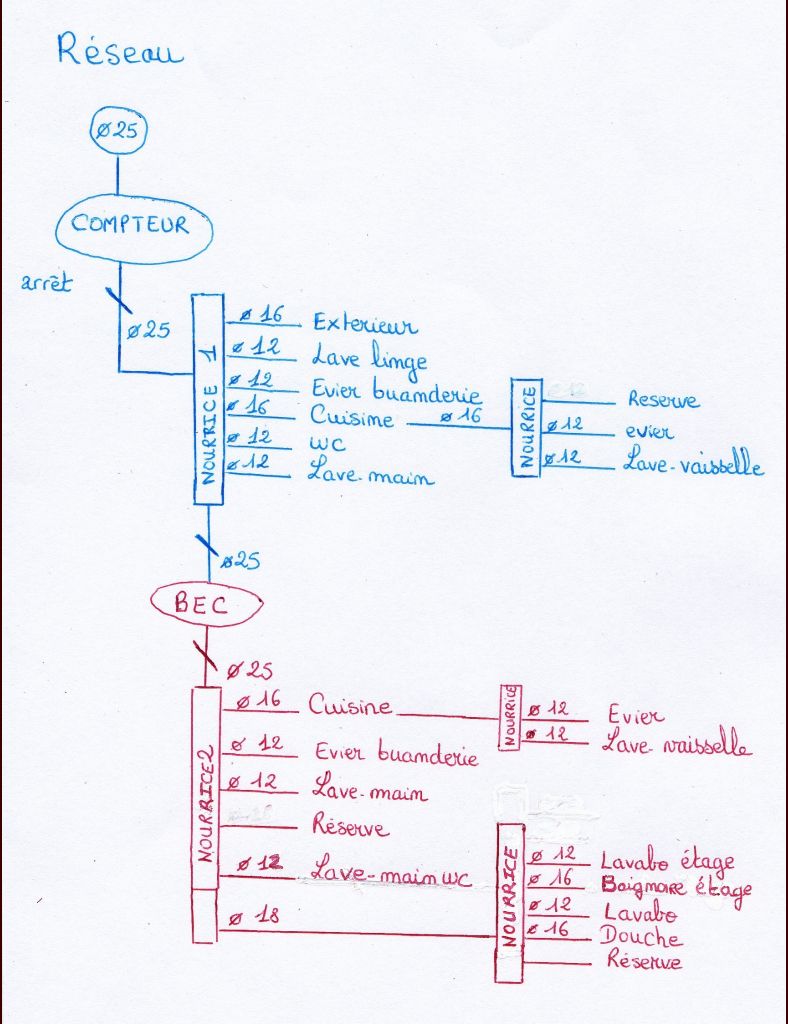 Réseau
ø25
COMPTEUR
arrêt
ø25
NOURRICE 1
ø 16 Exterieur
ø 12 Lave linge
ø 12 Evier buanderie
ø 16 Cuisine ø 16
ø 12 WC
ø 12 Lave-main
NOURRICE
Reserve
ø12 evier
ø12 Lave-vaisselle
ø25
BEC
ø 25
NOURRICE 2
ø 16 Cuisine
NOURRICE
ø 12 Evier
ø 12 Lave-vaisselle
ø 12 Evier buanderie
ø 12 Lave-main
Réserve
ø 12 Lave-main wc
ø 18
NOURRICE
ø 12 Lavabo étage
ø 16 Baignoire étage
ø 12 Lavabo
ø 16 Douche
Réserve